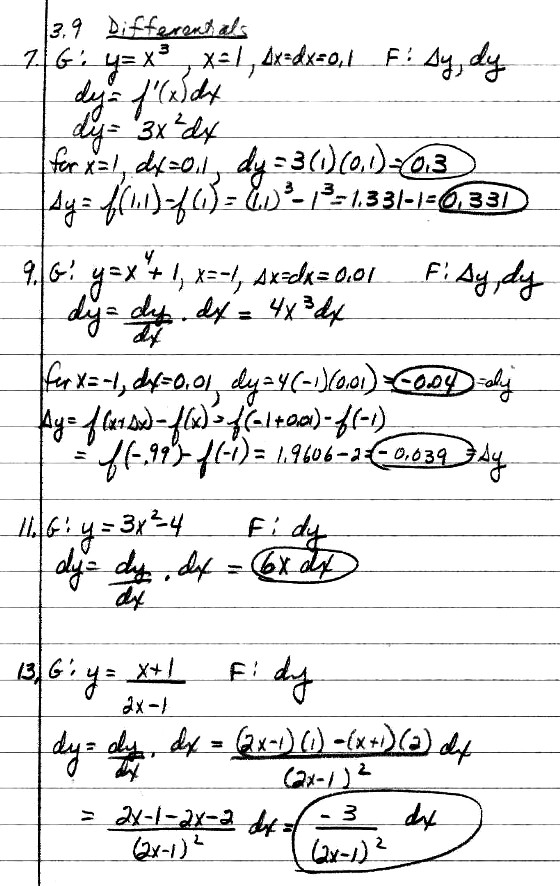 3.9 Differentials
7. G: y = x³, x=1, Δx=dx=0.1 F: Δy, dy
dy = f'(x)dx
dy = 3x²dx
for x=1, dx=0.1, dy = 3(1)(0.1) = 0.3
Δy = f(1.1)-f(1) = (1.1)³-1³ = 1.331-1 = 0.331
9. G: y=x⁴+1, x=-1, Δx=dx=0.01 F: Δy, dy
dy = dy/dx · dx = 4x³dx
for x=-1, dx=0.01, dy=4(-1)(0.01) = -0.04 = dy
Δy = f(x+Δx)-f(x) = f(-1+0.01)-f(-1)
= f(-.99)-f(-1) = 1.9606-2 = -0.039 = Δy
11. G: y = 3x²-4 F: dy
dy = dy/dx · dx = 6x dx
13. G: y = (x+1)/(2x-1) F: dy
dy = dy/dx · dx = ((2x-1)(1)-(x+1)(2))/(2x-1)² dx
= (2x-1-2x-2)/(2x-1)² dx = -3/(2x-1)² dx